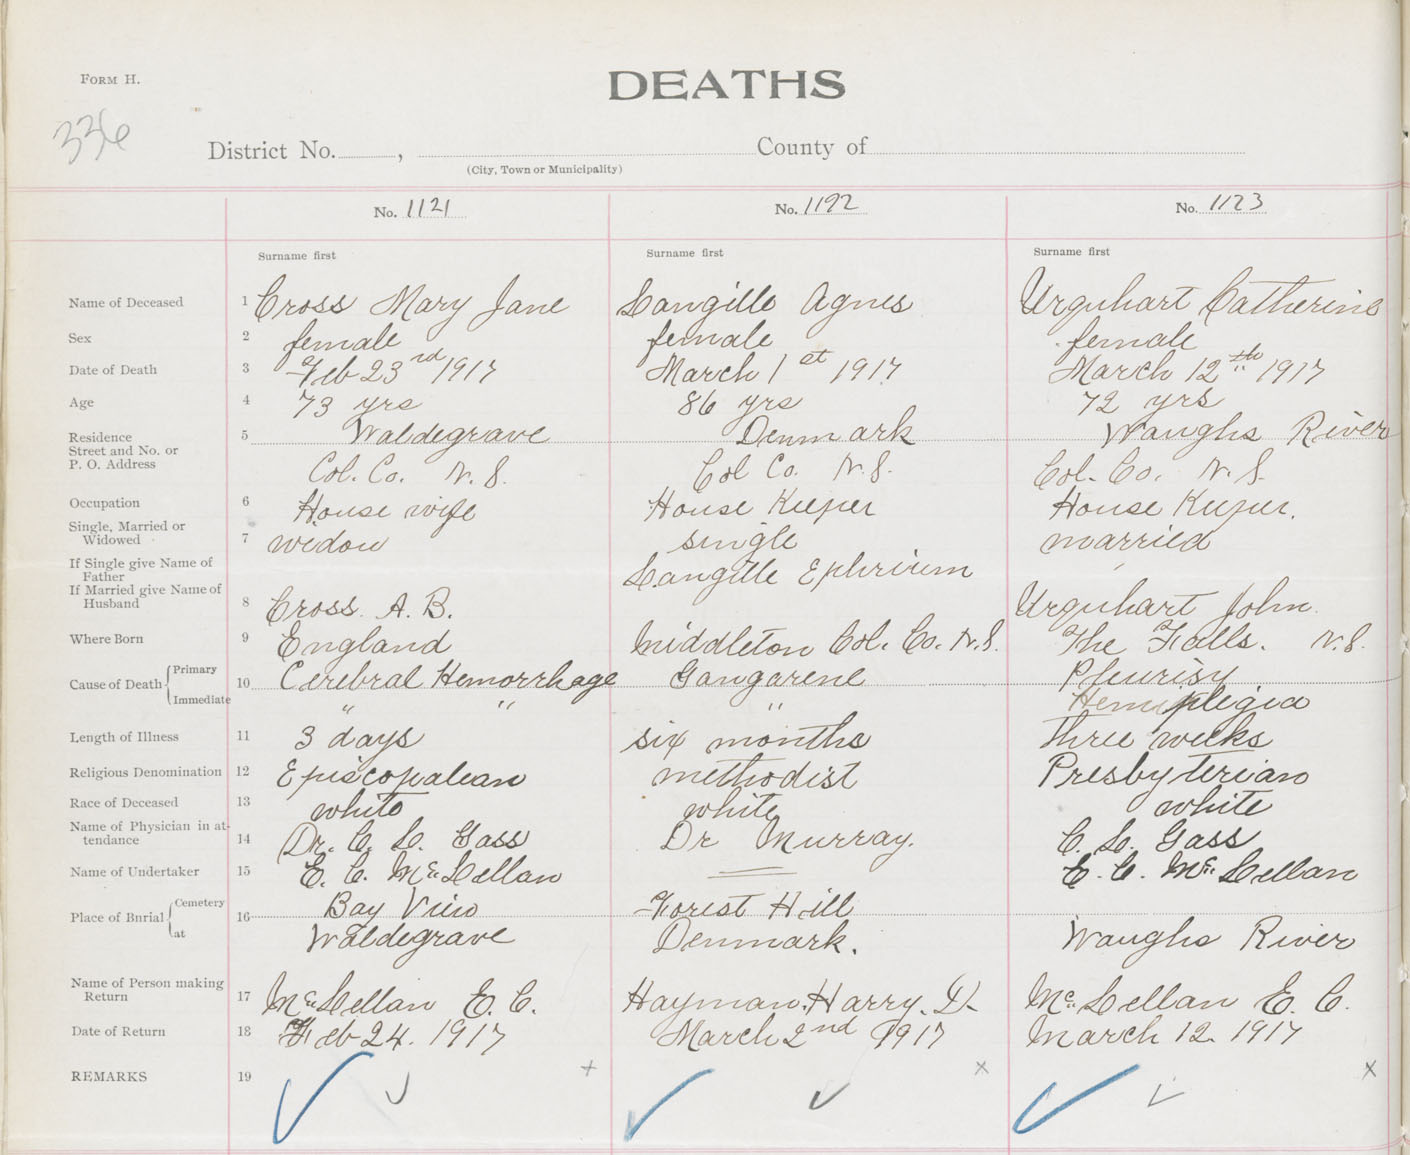 FORM H.
DEATHS
336
District No. , County of
(City, Town or Municipality)
No. 1121 No. 1192 No. 1123
Surname first Surname first Surname first
Name of Deceased 1 Cross Mary Jane Langille Agnes Urquhart Catherine
Sex 2 female female female
Date of Death 3 Feb 23rd 1917 March 1st 1917 March 12th 1917
Age 4 73 yrs 86 yrs 72 yrs
Residence 5 Waldegrave Denmark Waughs River
Street and No. or
P. O. Address Col. Co. N. S. Col Co. N. S. Col. Co. N. S.
Occupation 6 House wife House Keeper House Keeper.
Single, Married or
Widowed 7 widow single married
If Single give Name of
Father Langille Ephrium
If Married give Name of
Husband 8 Cross A. B. Urquhart John
Where Born 9 England Middleton Col. Co. N.S. The Falls. N.S.
Cause of Death Primary 10 Cerebral Hemorrhage Gangarene Pleurisy
Immediate " " " Hemipligia
Length of Illness 11 3 days six months three weeks
Religious Denomination 12 Episcopalean methodist Presbyterian
Race of Deceased 13 white white white
Name of Physician in at-
tendance 14 Dr. C. L. Gass Dr Murray. C. L. Gass
Name of Undertaker 15 E. C. McLellan E. C. McLellan
Place of Burial Cemetery 16 Bay View Forest Hill
at Waldegrave Denmark. Waughs River
Name of Person making
Return 17 McLellan E. C. Hayman, Harry. D. McLellan E. C.
Date of Return 18 Feb 24. 1917 March 2nd 1917 March 12. 1917
REMARKS 19